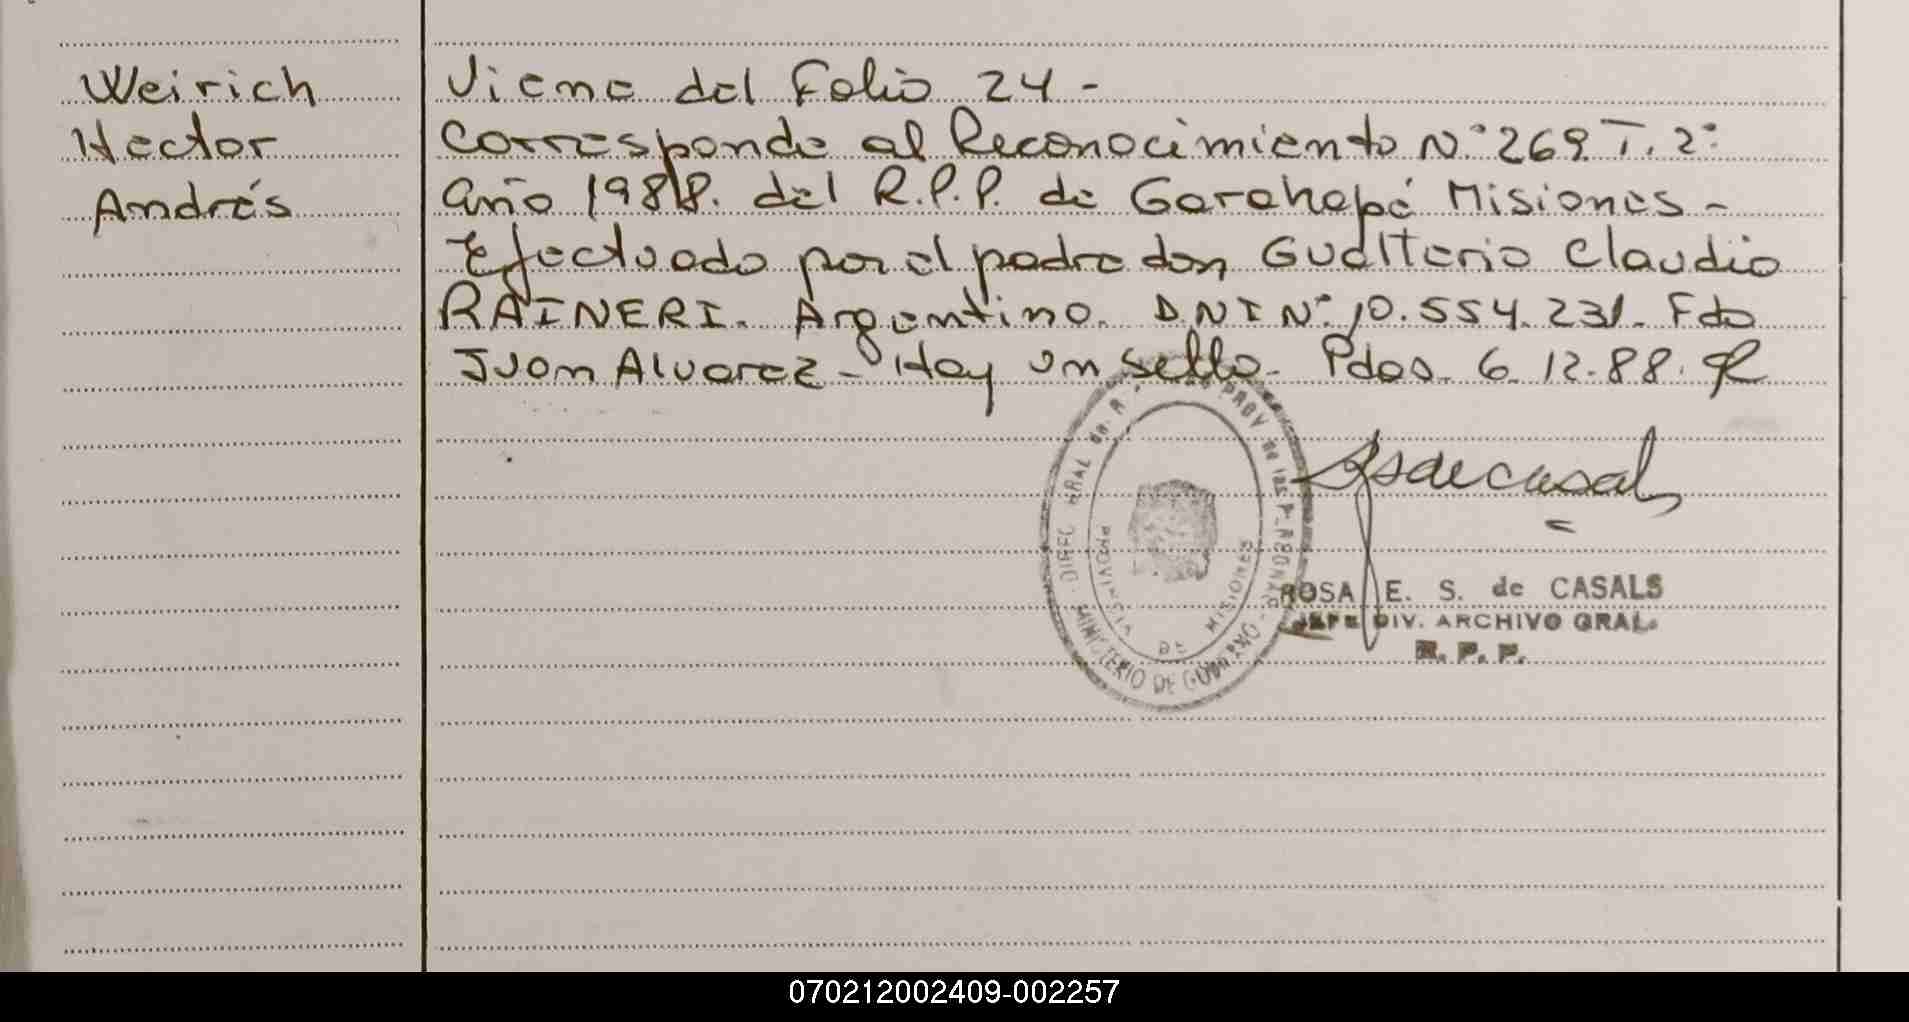 Weirich
Hector
Andrés
Viene del Folio 24 -
Corresponde al Reconocimiento N° 269 T. 2°
Año 1988. del R.P.P. de Garahapé Misiones -
Efectuado por el padre don Gualterio Claudio
RAINERI. Argentino. DNI N° 10.554.231. Fdo
Juan Alvarez - Hay un sello. Pdas. 6.12.88.
PROV de las P
DIREC GRAL
PROVINCIA DE MISIONES
MINISTERIO DE GOBIERNO
ROSA E. S. de CASALS
JEFE DIV. ARCHIVO GRAL.
R. P. P.
070212002409-002257